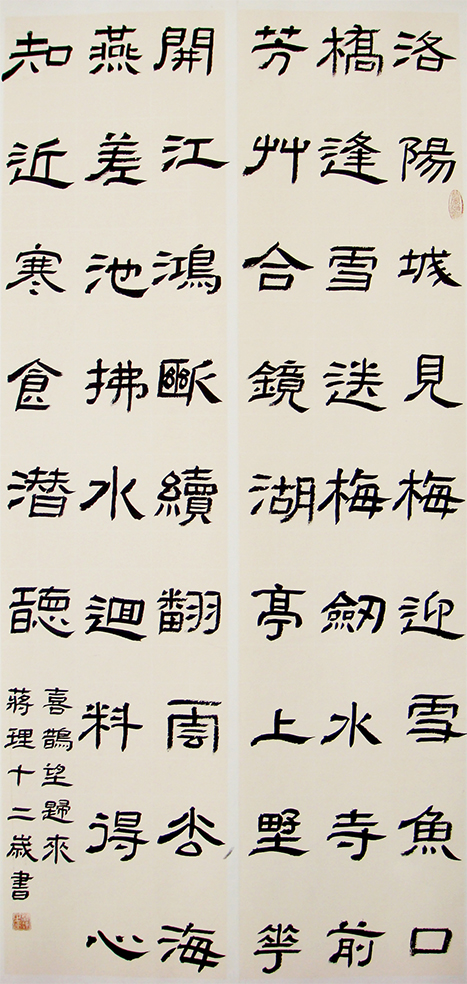 洛陽城見梅迎雪魚口
橋逢雪送梅劒水寺前
芳艸合鏡湖亭上野華
開江鴻斷續翻雲去海
燕差池拂水迴料得心
知近寒食潛聽
喜鵲望歸來
蔣理十二歲書